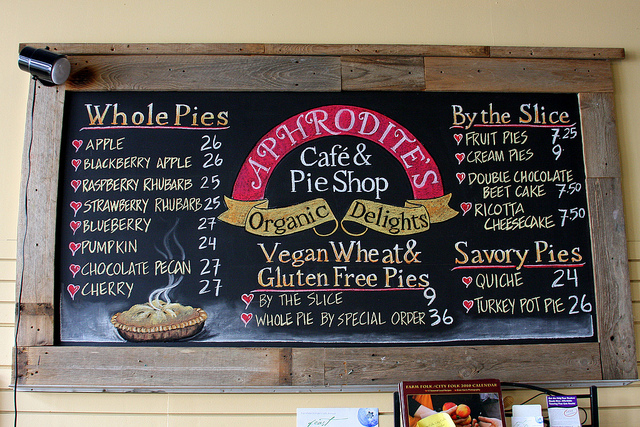 Whole Pies
APPLE 26
BLACKBERRY APPLE 26
RASPBERRY RHUBARB 25
STRAWBERRY RHUBARB 25
BLUEBERRY 27
PUMPKIN 24
CHOCOLATE PECAN 27
CHERRY 27
APHRODITE'S
Café &
Pie Shop
Organic Delights
Vegan Wheat &
Gluten Free Pies
BY THE SLICE 9
WHOLE PIE BY SPECIAL ORDER 36
By the Slice
FRUIT PIES 7.25
CREAM PIES 9.
DOUBLE CHOCOLATE
BEET CAKE 7.50
RICOTTA
CHEESECAKE 7.50
Savory Pies
QUICHE 24
TURKEY POT PIE 26
FARM FOLK/CITY FOLK 2010 CALENDAR